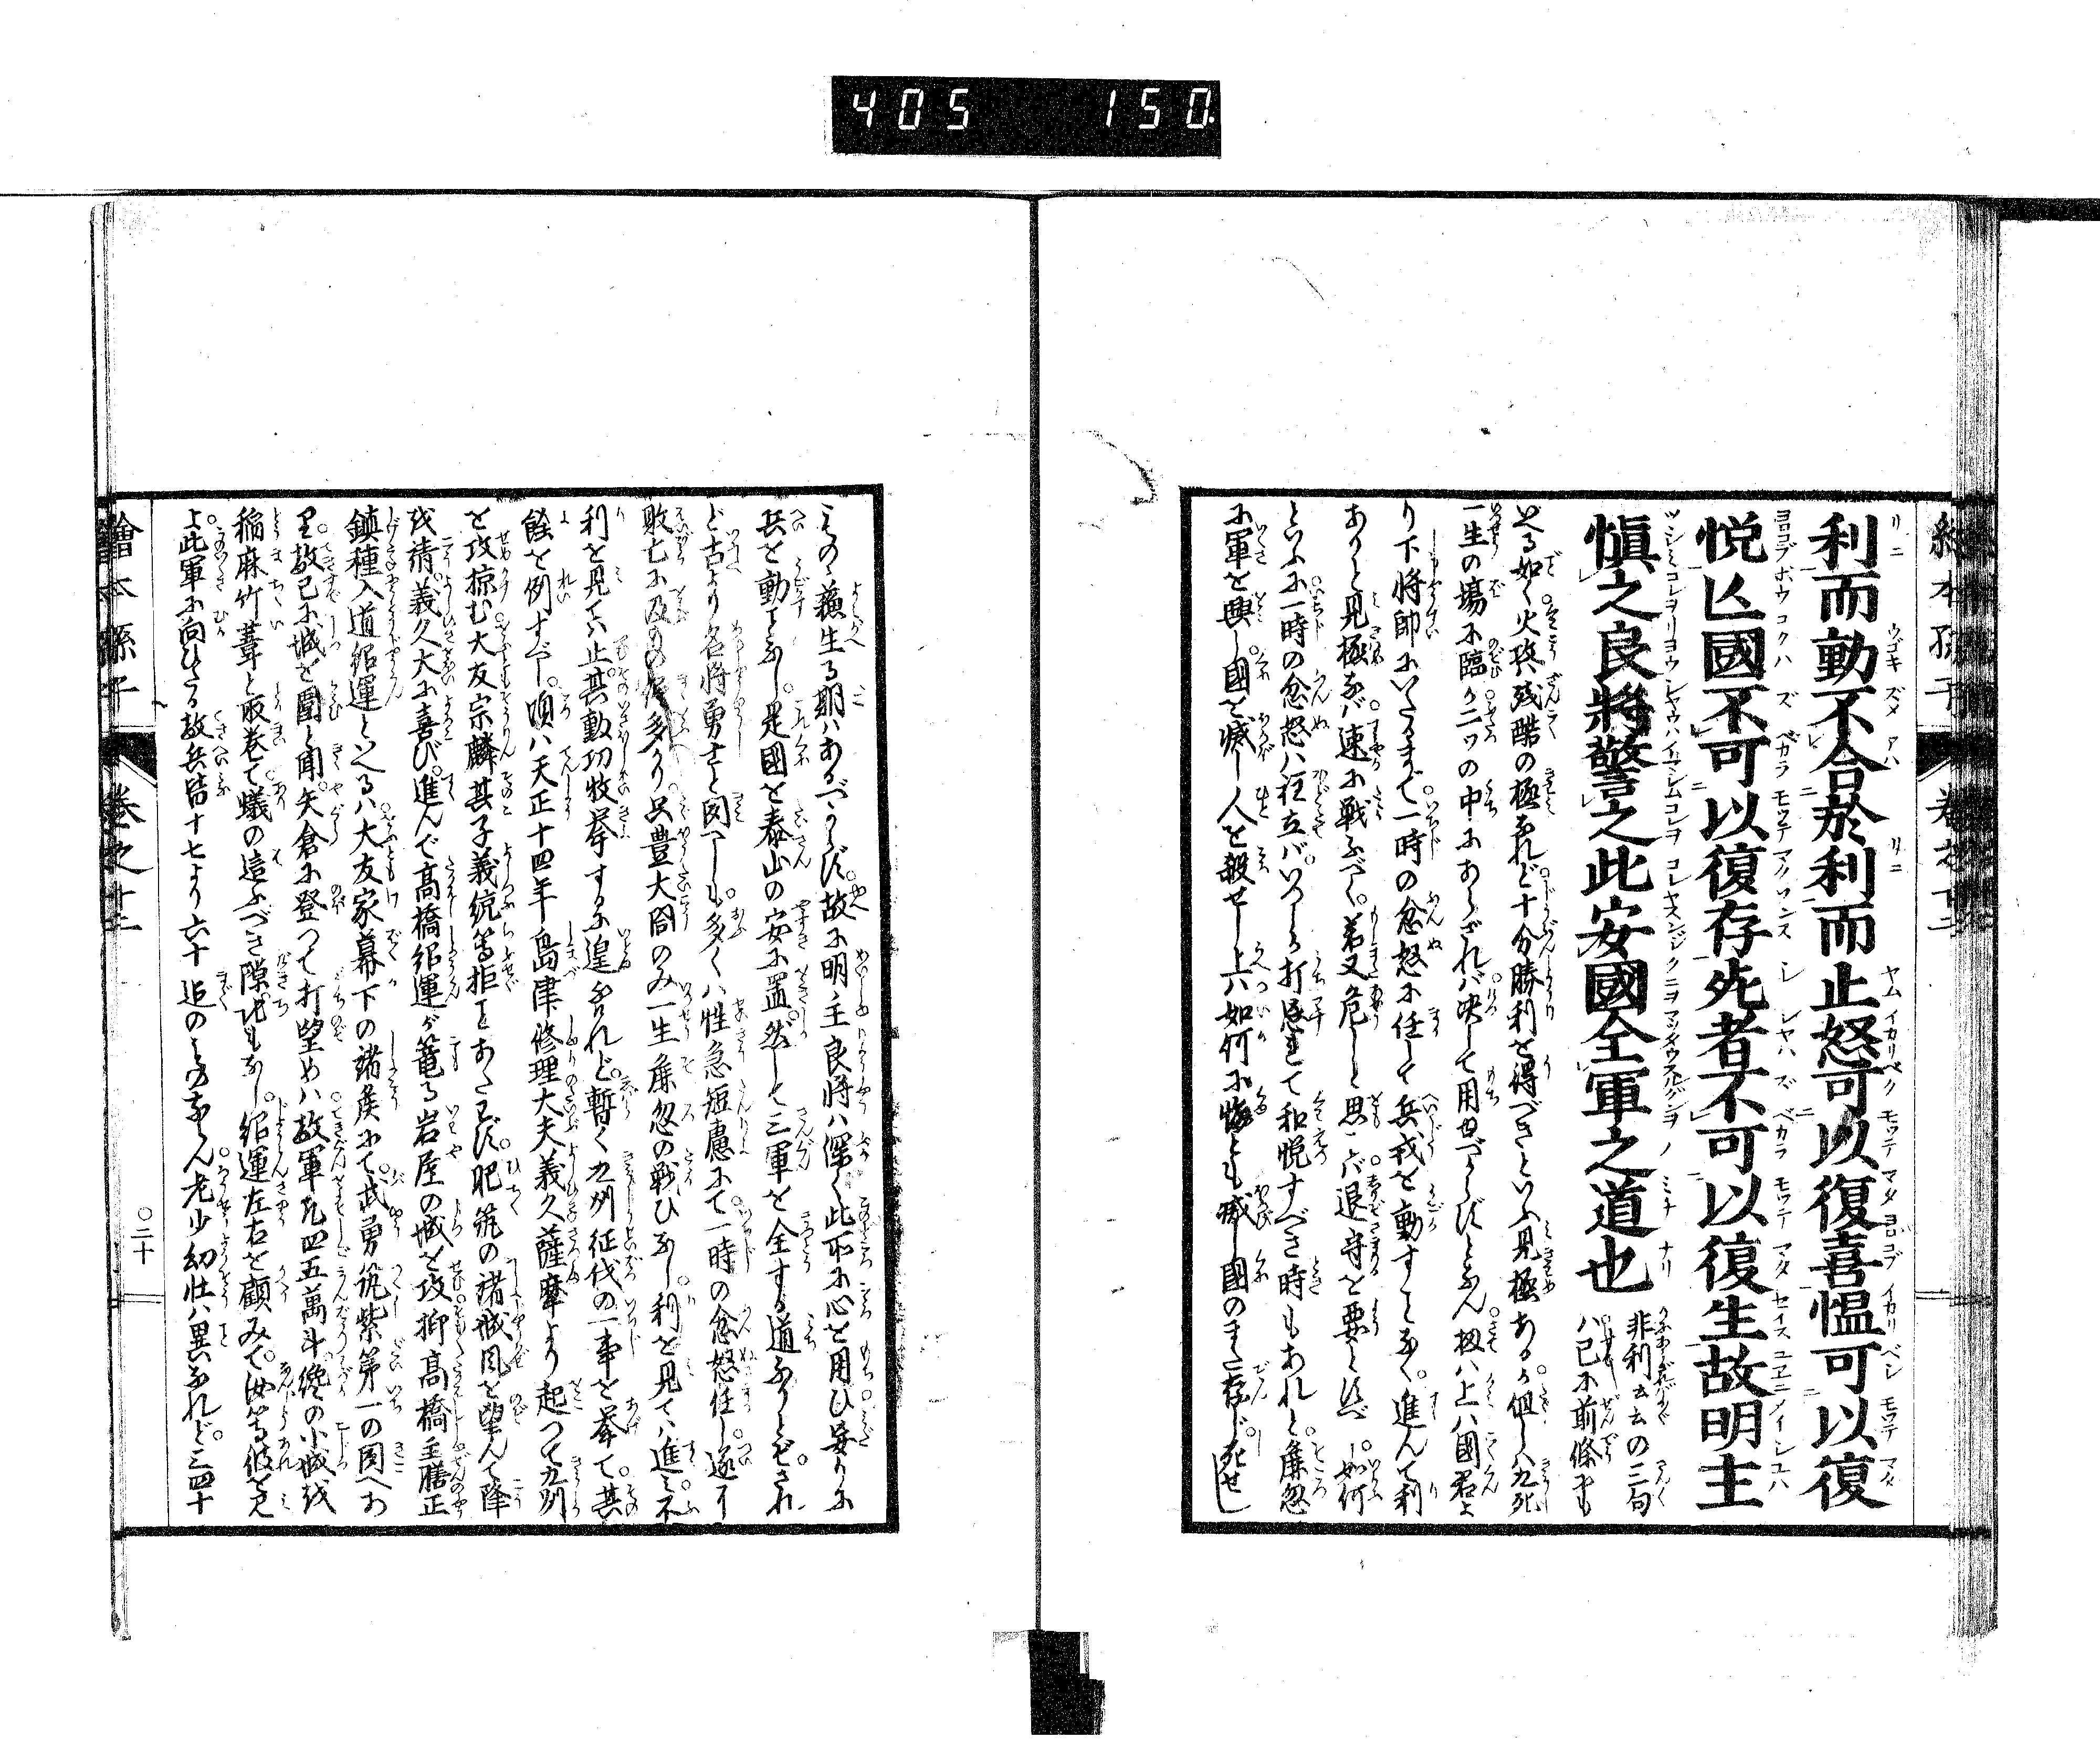 405 150
利而動不合於利而止怒可以復喜慍可以復
悦亡國不可以復存死者不可以復生故明主
慎之良將警之此安國全軍之道也
非利云云の三句
ハ已に前條にも
いへる如く火攻ハ残酷の極なれど十分勝利を得べきといふ見極ある但しハ九死
一生の場に臨か二ツの中にあらざれバ決して用ゆべからずとなん扨ハ上ハ國君よ
り下將帥にいたるまで一時の忿怒に任して兵戎を動すことなく進んで利
ありと見極なバ速に戦ふべく若又危しと思ハヾ退守を要とすべし如何
といふに一時の忿怒ハ
和悦すべき時もあれど麁忽
に軍を興し國を滅し人を殺せし上ハ如何に悔とも滅し國のまた存じ死せし
ものゝ蘓生る期ハあるべからず故に明主良將ハ深く此所に心を用ひ妄りに
兵を動さずなし是國を泰山の安に置然して三軍を全する道なりとぞされ
ど古より名將勇士と聞へしも多くハ性急短慮にて一時の忿怒任し遂に
敗亡に及もの多かり只豊大閤のみ一生麁忽の戦ひなし利を見てハ進ミ不
利を見てハ止其勲功枚挙するに遑あらねど暫く九州征伐の一事を挙て其
餘を例すべし頃ハ天正十四年島津修理大夫義久薩摩より起つて九州
を攻掠む大友宗麟其子義統等拒ことあたはず肥筑の諸城風を望んで降
を請義久大に喜び進んで髙橋紹運が篭る岩屋の城を攻抑髙橋主膳正
鎮種入道紹運といへるハ大友家幕下の諸侯にて武勇筑紫第一の聞へあ
り敵已に城を圍と聞矢倉に登つて打望めハ敵軍凡四五萬斗纔の小城を
稲麻竹葦と取巻て蟻の這ふべき隙地もなし紹運左右を顧みて汝等彼を見
よ此軍に向ひたる敵兵皆十七より六十迄のものならん老少幼壮ハ異なれど三四十
繪本孫子 卷之十二 〇二十